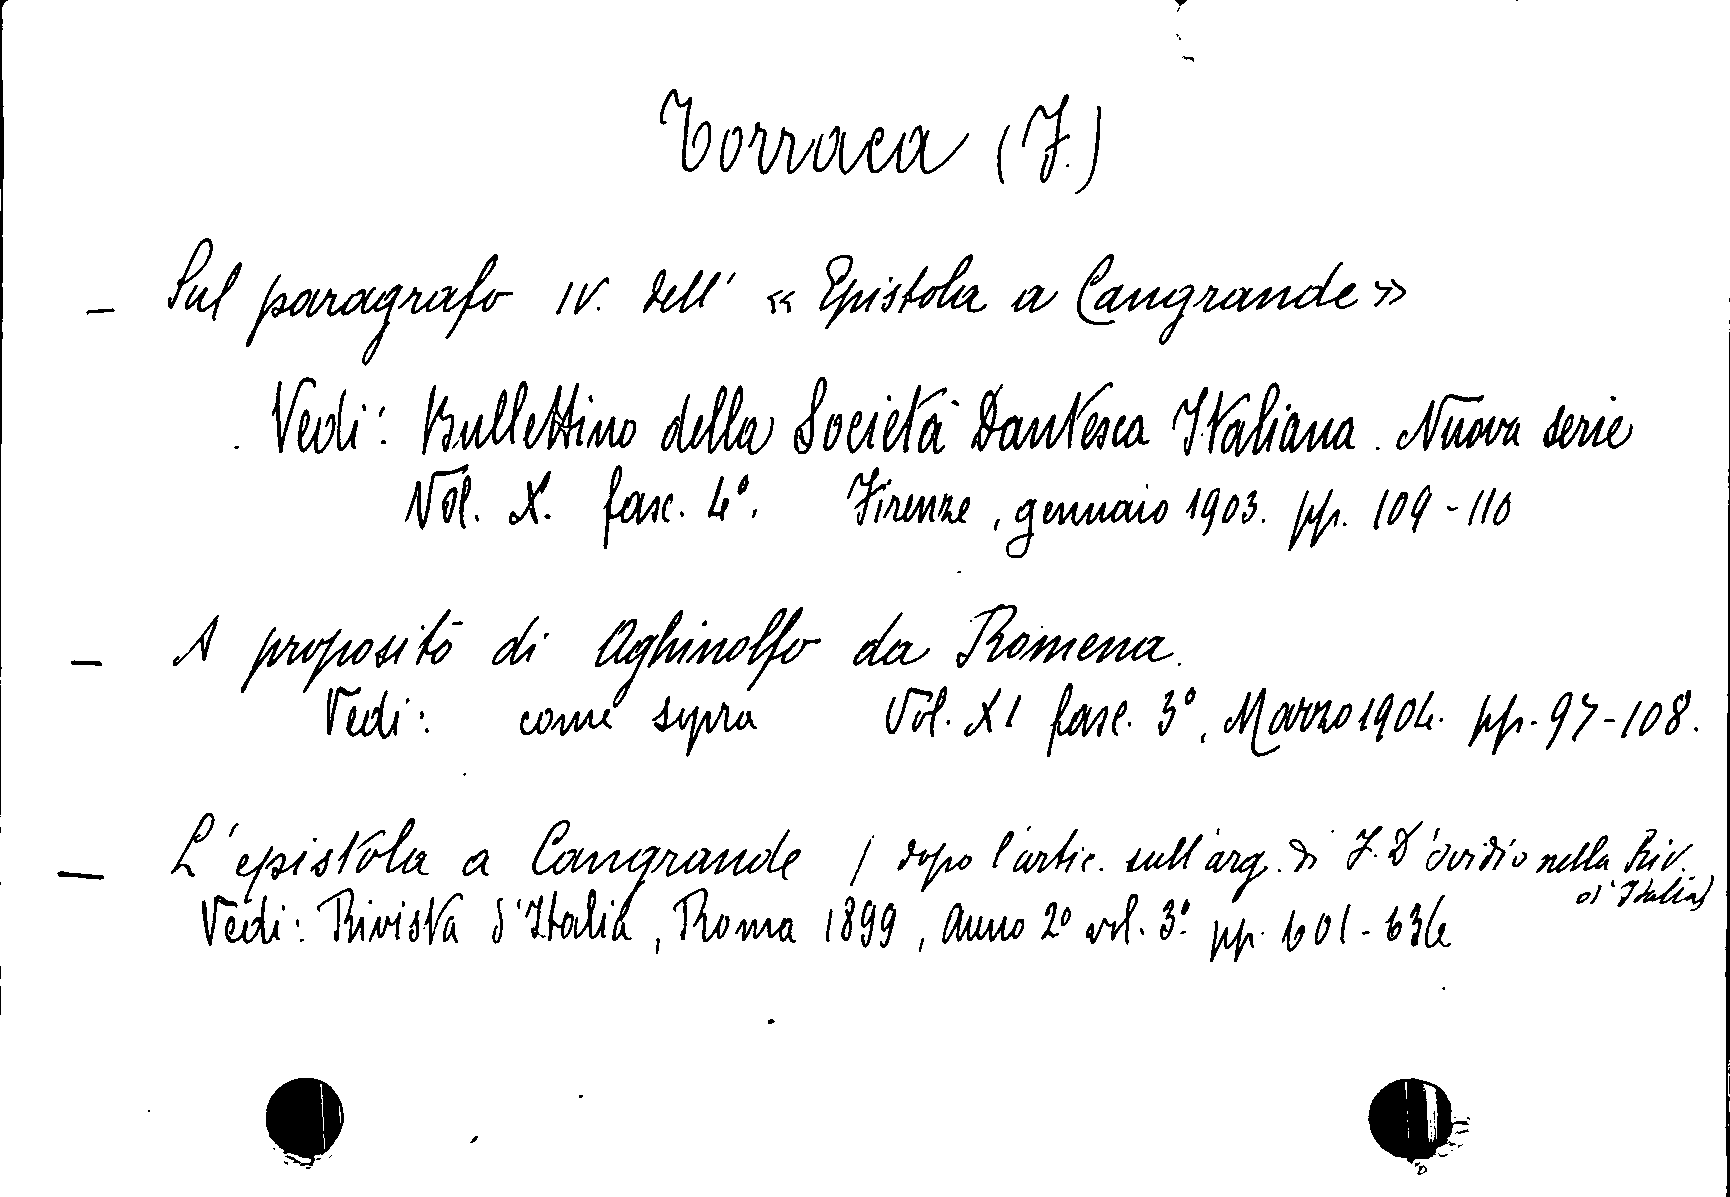 Torraca (F.)
- Sul paragrafo IV. dell' « Epistola a Cangrande »
Vedi: Bullettino della Società Dantesca Italiana. Nuova serie
Vol. X. fasc. 4°. Firenze, gennaio 1903. pp. 109-110
- A proposito di Aghinolfo da Romena.
Vedi: come sopra Vol. XI fasc. 3°, Marzo 1904. pp. 97-108.
- L'epistola a Cangrande / dopo l'artic. sull'arg. di F. D'Ovidio nella Riv.
d'Italia)
Vedi: Rivista d'Italia, Roma 1899, Anno 2° vol. 3°. pp. 601-636